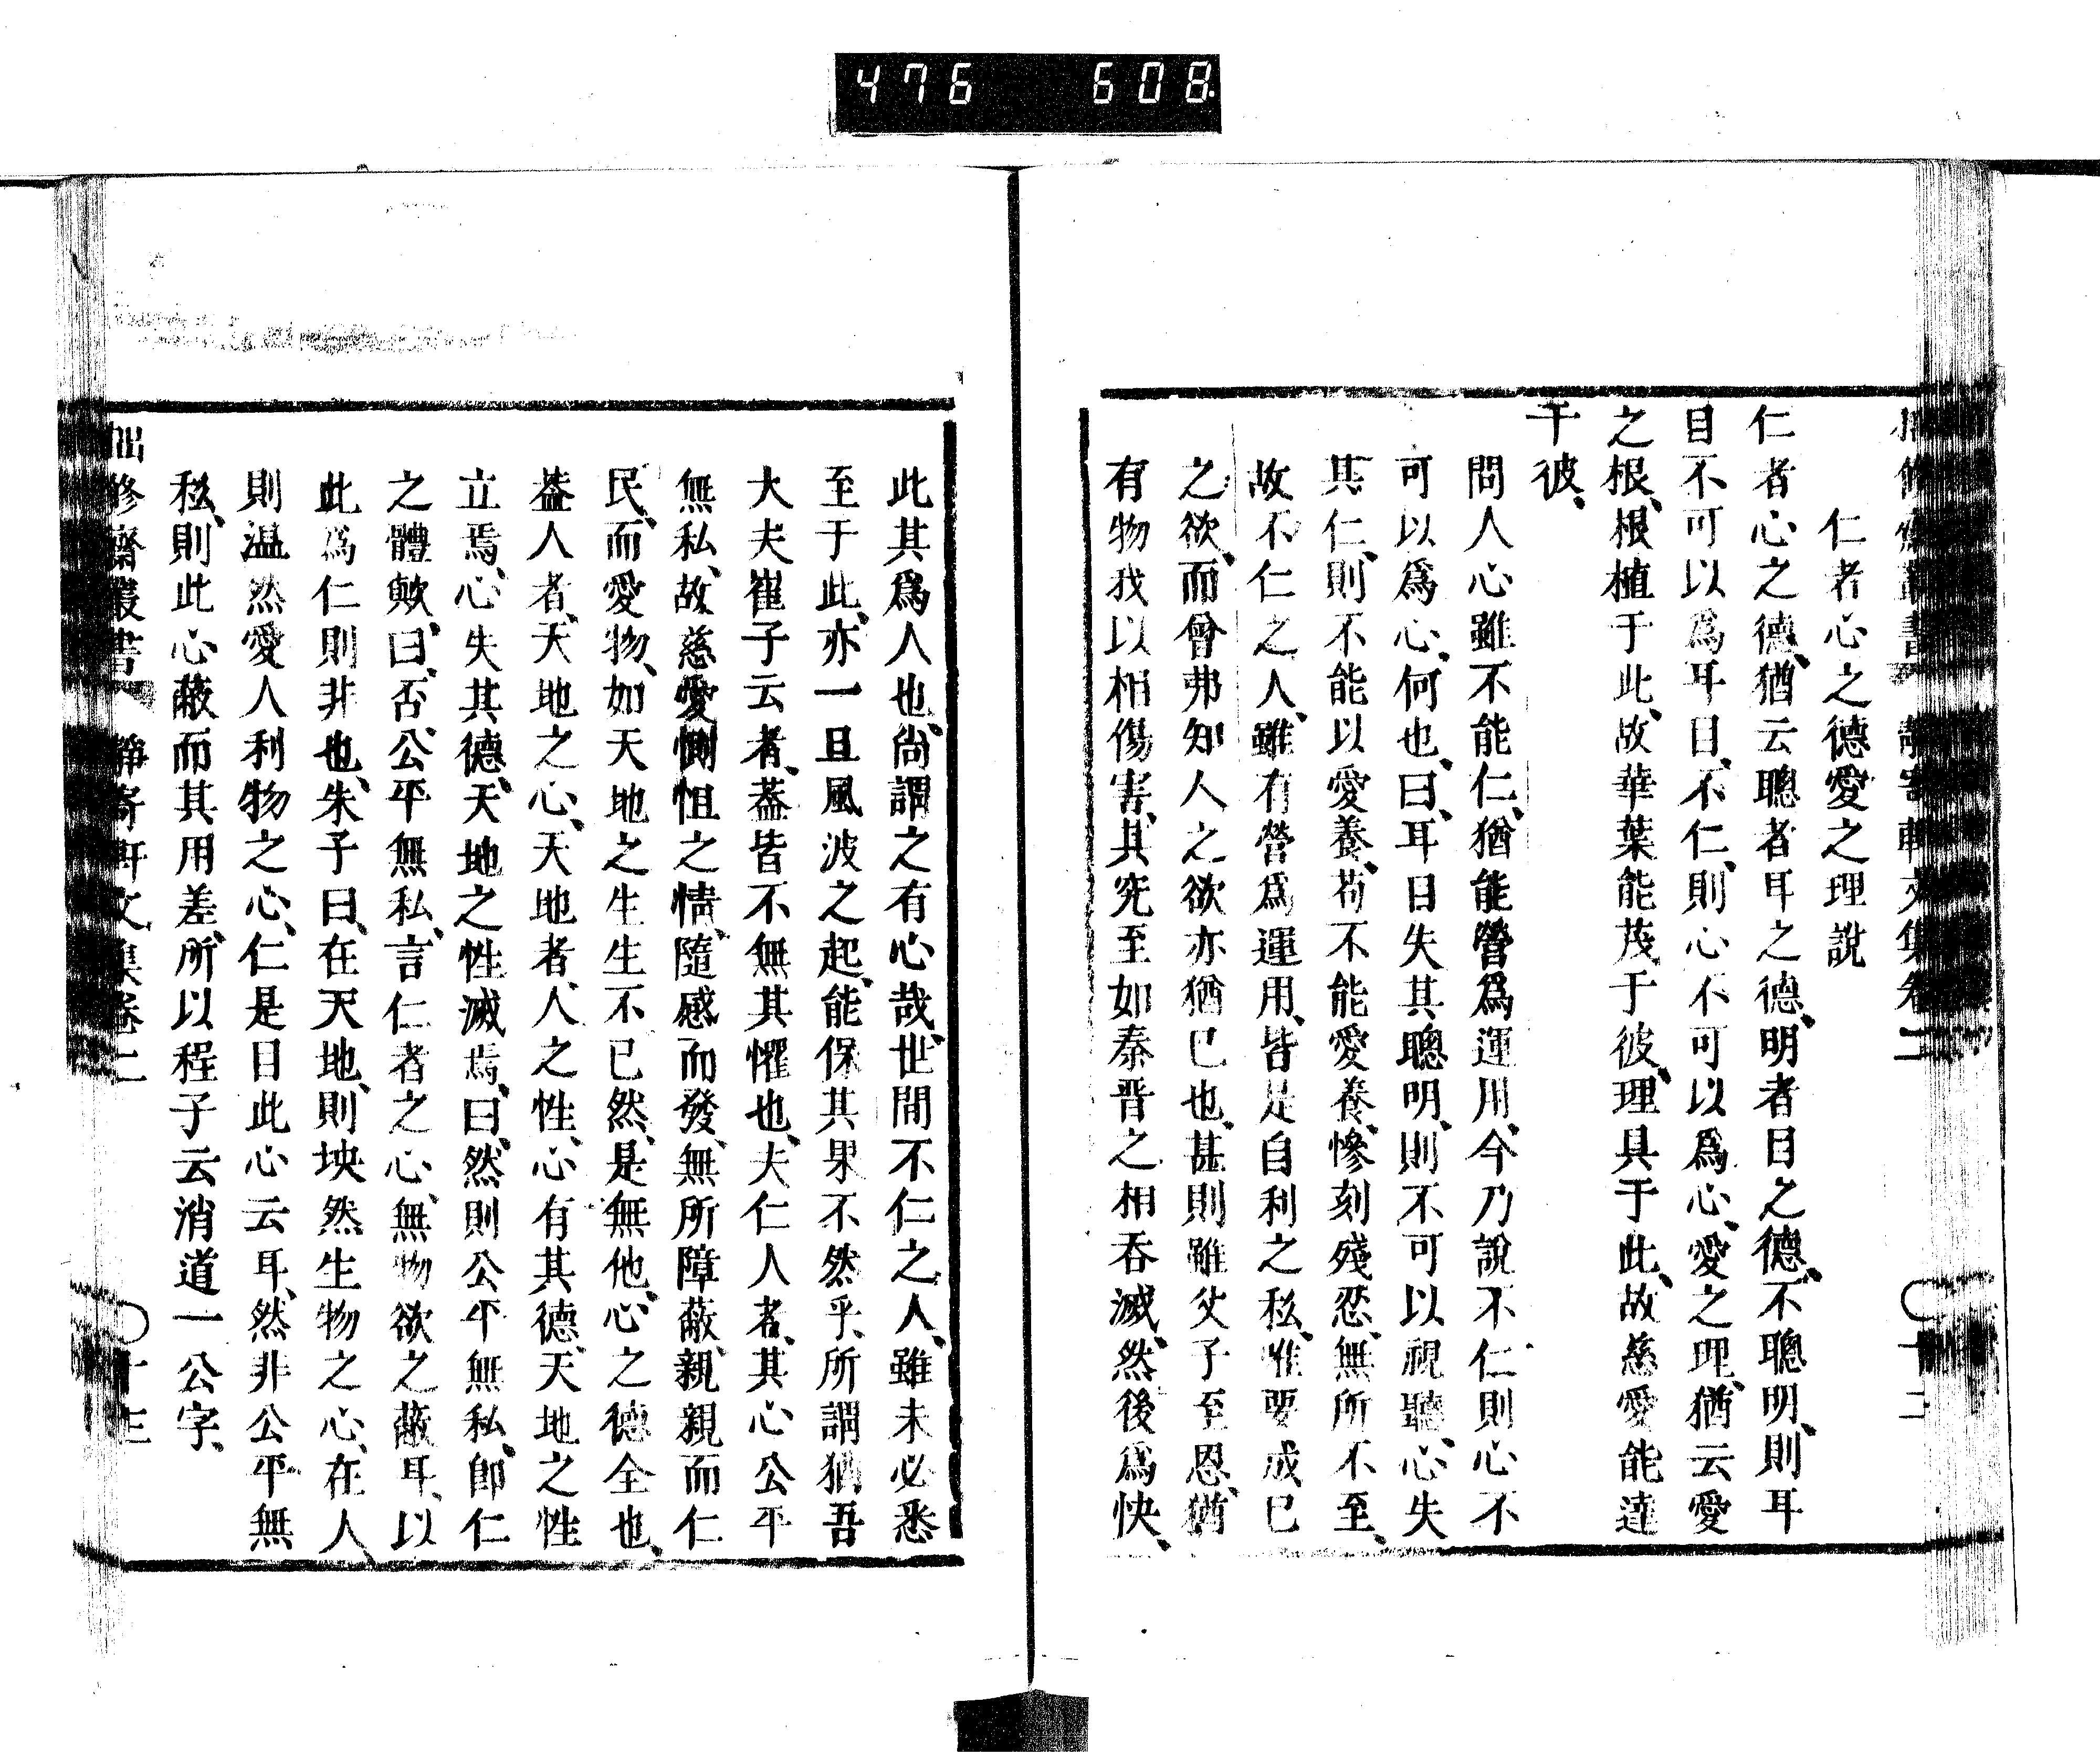 476 608
仁者心之德愛之理說
仁者心之德、猶云聰者耳之德、明者目之德、不聰明、則耳
目不可以爲耳目、不仁、則心不可以爲心、愛之理、猶云愛
之根、根植于此、故華葉能茂于彼、理具于此、故慈愛能達
于彼、
問人心雖不能仁、猶能營爲運用、今乃說不仁則心不
可以爲心、何也、曰、耳目失其聰明、則不可以視聽、心失
其仁、則不能以愛養、苟不能愛養、慘刻殘忍、無所不至、
故不仁之人、雖有營爲運用、皆是自利之私、惟要成已
之欲、而曾弗知人之欲亦猶已也、甚則雖父子至恩、猶
有物我以相傷害、其究至如秦晋之相吞滅、然後爲快、
此其爲人也、尙謂之有心哉、世間不仁之人、雖未必悉
至于此、亦一旦風波之起、能保其果不然乎、所謂猶吾
大夫崔子云者、葢皆不無其懼也、夫仁人者、其心公平
無私、故慈愛惻怛之情、隨感而發、無所障蔽、親親而仁
民、而愛物、如天地之生生不已然、是無他、心之德全也、
葢人者、天地之心、天地者、人之性、心有其德、天地之性
立焉、心失其德、天地之性滅焉、曰、然則公平無私、卽仁
之體歟、曰、否、公平無私、言仁者之心、無物欲之蔽耳、以
此爲仁則非也、朱子曰、在天地、則坱然生物之心、在人
則温然愛人利物之心、仁是目此心云耳、然非公平無
私、則此心蔽而其用差、所以程子云消道一公字、
修齋叢書 靜寄軒文集卷二 〇十三